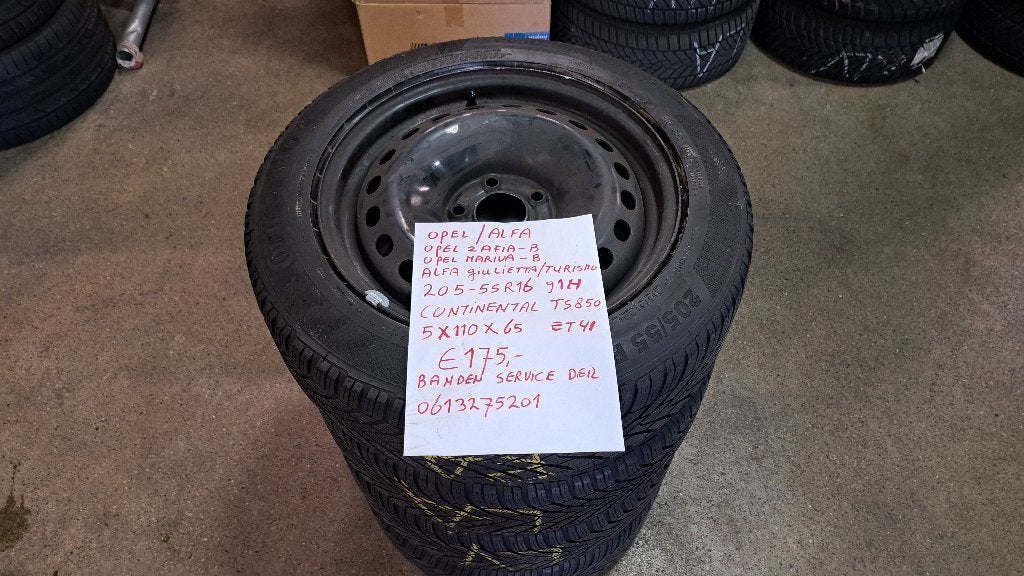 OPEL / ALFA
OPEL ZAFIA-B
OPEL MARIVA-B
ALFA giuLIETTA/TURISMO
205-55R16 91H
CONTINENTAL TS850
5X110X65 ET41
€175,-
BANDEN SERVICE DEIL
0613275201
205/55 R